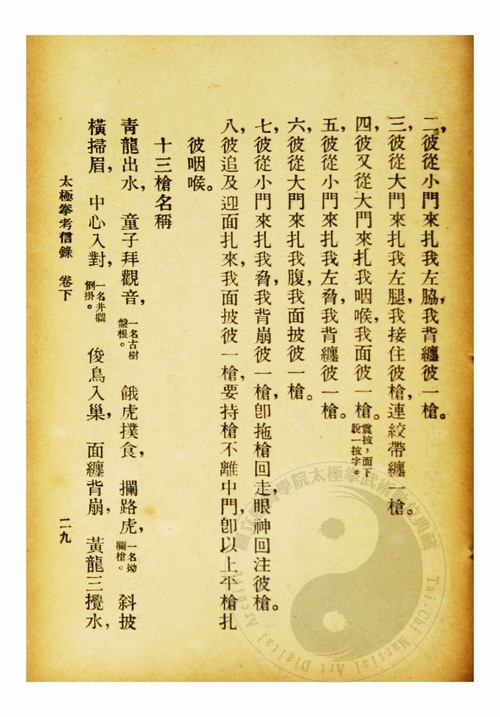 二、彼從小門來扎我左脇，我背纏彼一槍。
三、彼從大門來扎我左腿，我接住彼槍，連絞帶纏一槍。
四、彼又從大門來扎我咽喉，我面彼一槍。震按，面下脫一披字。
五、彼從小門來扎我左脅，我背纏彼一槍。
六、彼從大門來扎我腹，我面披彼一槍。
七、彼從小門來扎我脅，我背崩彼一槍，卽拖槍回走，眼神回注彼槍。
八、彼追及迎面扎來，我面披彼一槍，要持槍不離中門，卽以上平槍扎
彼咽喉。
十三槍名稱
青龍出水，童子拜觀音，一名古樹盤根。餓虎撲食，攔路虎，一名拗攔槍。斜披
橫掃眉，中心入對，一名井欄倒掛。俊鳥入巢，面纏背崩，黃龍三攪水，
太極拳考信錄 卷下 二九
學院太極拳武術 典藏
Tai-Chi Martial Art Digital Archive